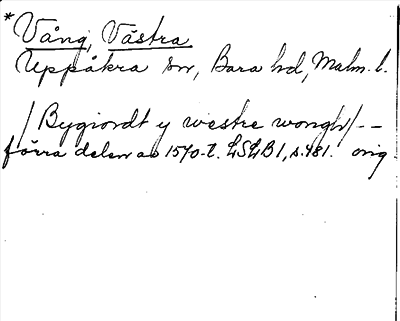 *Vång, Västra
Uppåkra sn, Bara hd, Malm. l.
/ Bygiordt y westre wongh / --
förra delen av 1570-t. LSLB I, s. 481. orig.